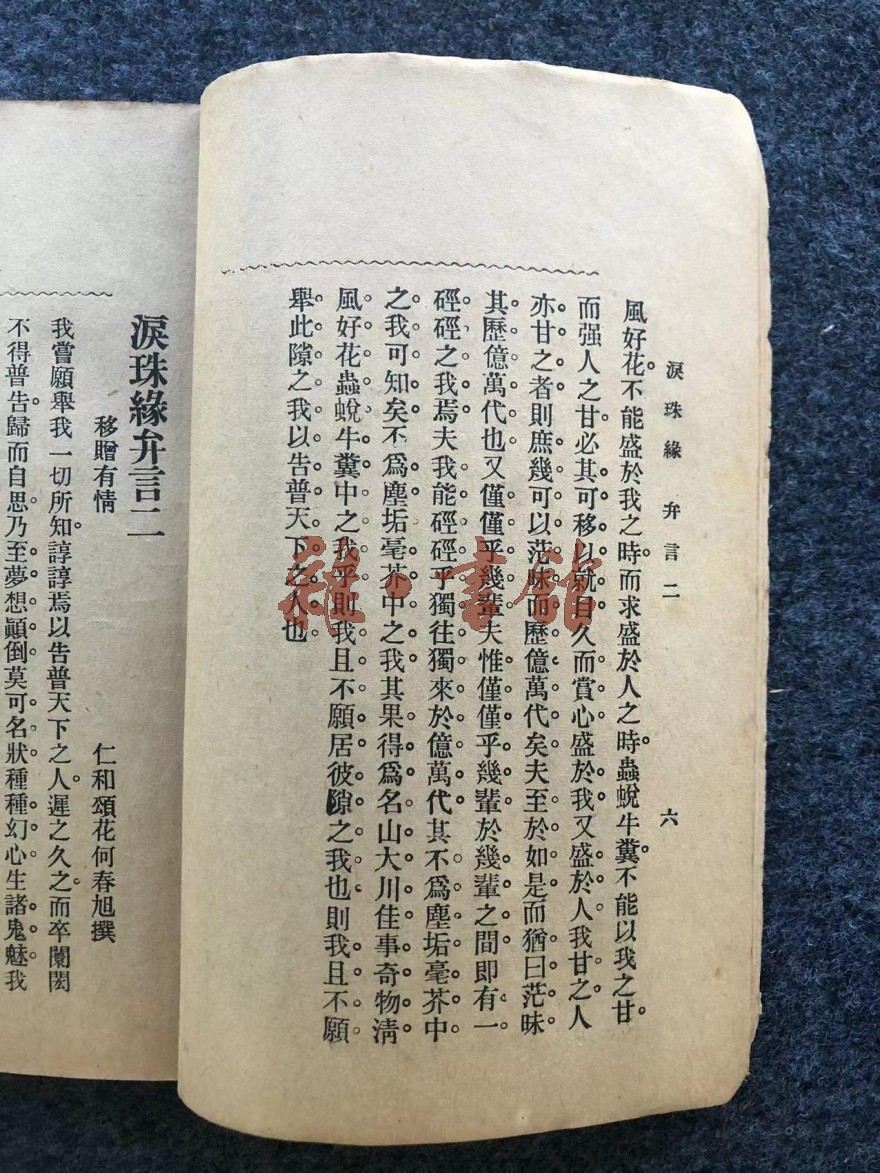 淚珠緣 弁言二 六
風好花不能盛於我之時而求盛於人之時蟲蛻牛糞不能以我之甘
而强人之甘必其可移以就自久而賞心盛於我又盛於人我甘之人
亦甘之者則庶幾可以茫昧而歷億萬代矣夫至於如是而猶曰茫昧
其歷億萬代也又僅僅乎幾輩夫惟僅僅乎幾輩於幾輩之間即有一
硜硜之我焉夫我能硜硜乎獨往獨來於億萬代其不爲塵垢毫芥中
之我可知矣不爲塵垢毫芥中之我其果得爲名山大川佳事奇物淸
風好花蟲蛻牛糞中之我乎則我且不願居彼隙之我也則我且不願
舉此隙之我以告普天下之人也
淚珠緣弁言二
移贈有情 仁和頌花何春旭撰
我嘗願舉我一切所知諄諄焉以告普天下之人遲之久之而卒闌闳
不得普告歸而自思乃至夢想顚倒莫可名狀種種幻心生諸鬼魅我
雜·書館